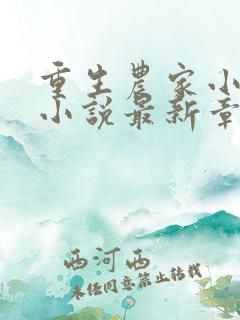 重生農家小
小說最新章
西河西
未经同意禁止转载